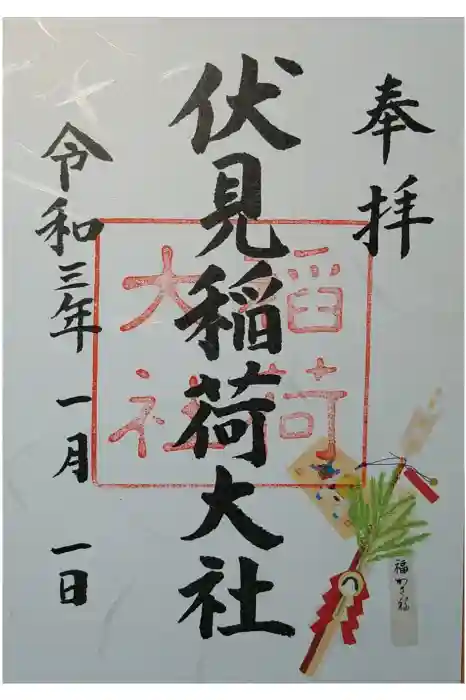 奉拝
伏見稲荷大社
稲荷
大社
令和三年 一月 一日